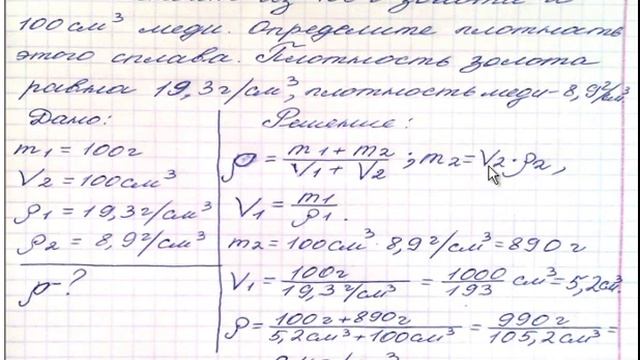 из 100 г золота и
100 см³ меди. Определите плотность
этого сплава. Плотность золота
равна 19,3 г/см³, плотность меди - 8,9 г/см³
Дано:
m1 = 100 г
V2 = 100 см³
ρ1 = 19,3 г/см³
ρ2 = 8,9 г/см³
ρ - ?
Решение:
ρ = (m1 + m2)/(V1 + V2) ; m2 = V2 · ρ2 ,
V1 = m1/ρ1 .
m2 = 100 см³ · 8,9 г/см³ = 890 г
V1 = 100 г/19,3 г/см³ = 1000/193 см³ = 5,2 см³.
ρ = (100 г + 890 г)/(5,2 см³ + 100 см³) = 990 г/105,2 см³ =